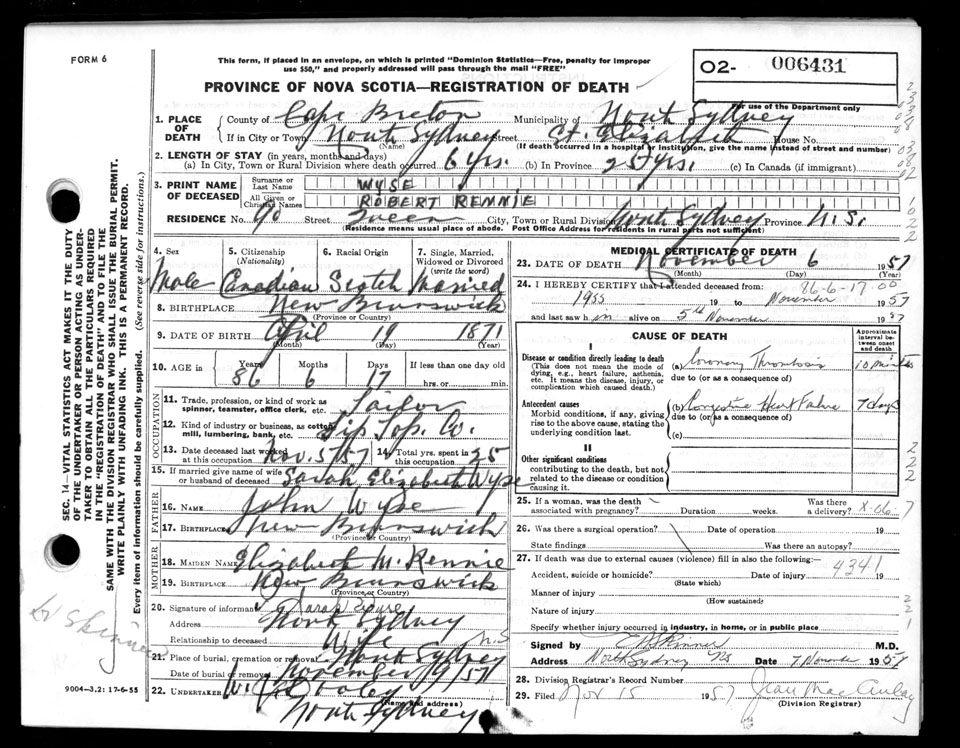 FORM 6
This form, if placed in an envelope, on which is printed "Dominion Statistics—Free, penalty for improper
use $50," and properly addressed will pass through the mail "FREE"
PROVINCE OF NOVA SCOTIA—REGISTRATION OF DEATH
O2- 006431
For use of the Department only
1. PLACE OF DEATH
County of Cape Breton Municipality of North Sydney
If in City or Town North Sydney Street St. Elizabeth House No.
(Name) (If death occurred in a hospital or Institution, give the name instead of street and number)
2. LENGTH OF STAY (in years, months and days)
(a) In City, Town or Rural Division where death occurred 6 yrs. (b) In Province 25 yrs. (c) In Canada (if immigrant)
3. PRINT NAME OF DECEASED
Surname or Last Name WYSE
All Given or Christian Names ROBERT RENNIE
RESIDENCE No. 90 Street Queen City, Town or Rural Division North Sydney Province N.S.
(Residence means usual place of abode. Post Office Address for residents in rural parts not sufficient)
4. Sex Male
5. Citizenship (Nationality) Canadian
6. Racial Origin Scotch
7. Single, Married, Widowed or Divorced (write the word) Married
8. BIRTHPLACE New Brunswick
(Province or Country)
9. DATE OF BIRTH April 19 1871
(Month) (Day) (Year)
10. AGE in Years 56 Months 6 Days 17 If less than one day old
hrs. or min.
OCCUPATION
11. Trade, profession, or kind of work as
spinner, teamster, office clerk, etc. Tailor
12. Kind of industry or business, as cotton
mill, lumbering, bank, etc. Tip Top. Co.
13. Date deceased last worked at this occupation Nov. 5/57
14. Total yrs. spent in this occupation 25
15. If married give name of wife
or husband of deceased Sarah Elizabeth Wyse
FATHER
16. Name John Wyse
17. Birthplace New Brunswick
(Province or Country)
MOTHER
18. Maiden Name Elizabeth M. Rennie
19. Birthplace New Brunswick
(Province or Country)
20. Signature of informant Sarah Wyse
Address North Sydney
Relationship to deceased Wife N.S
21. Place of burial, cremation or removal North Sydney
Date of burial or removal November /57
22. UNDERTAKER
(Name and address)
North Sydney
9004—3.2: 17-6-55
MEDICAL CERTIFICATE OF DEATH
23. DATE OF DEATH November 6 1957
(Month) (Day) (Year)
24. I HEREBY CERTIFY that I attended deceased from: 86-6-17-00
1955 19 to November 1957
and last saw h im alive on 5th November 1957
CAUSE OF DEATH
Approximate interval between onset and death
I
Disease or condition directly leading to death
(This does not mean the mode of
dying, e.g., heart failure, asthenia,
etc. It means the disease, injury, or
complication which caused death.)
(a) Coronary Thrombosis 10 minutes
due to (or as a consequence of)
Antecedent causes
Morbid conditions, if any, giving
rise to the above cause, stating the
underlying condition last.
(b) Congestive Heart Failure 7 days
due to (or as a consequence of)
(c)
II
Other significant conditions
contributing to the death, but not
related to the disease or condition
causing it.
25. If a woman, was the death
associated with pregnancy? Duration weeks. Was there a delivery? X-06
26. Was there a surgical operation? Date of operation 19
State findings Was there an autopsy?
27. If death was due to external causes (violence) fill in also the following:
4341
Accident, suicide or homicide? Date of 19
(State which)
Manner of injury
(How sustained)
Nature of injury
Specify whether injury occurred in industry, in home, or in public place
Signed by E Skinner M.D.
Address North Sydney NS Date 7 November 1957
28. Division Registrar's Record Number
29. Filed Nov 15 1957 Jean MacAulay
(Division Registrar)
SEC. 14—VITAL STATISTICS ACT MAKES IT THE DUTY
OF THE UNDERTAKER OR PERSON ACTING AS UNDER-
TAKER TO OBTAIN ALL THE PARTICULARS REQUIRED
IN THE "REGISTRATION OF DEATH" AND TO FILE THE
SAME WITH THE DIVISION REGISTRAR WHO SHALL ISSUE THE BURIAL PERMIT.
WRITE PLAINLY WITH UNFADING INK. THIS IS A PERMANENT RECORD.
Every item of information should be carefully supplied. (See reverse side for instructions.)
Dr Skinner